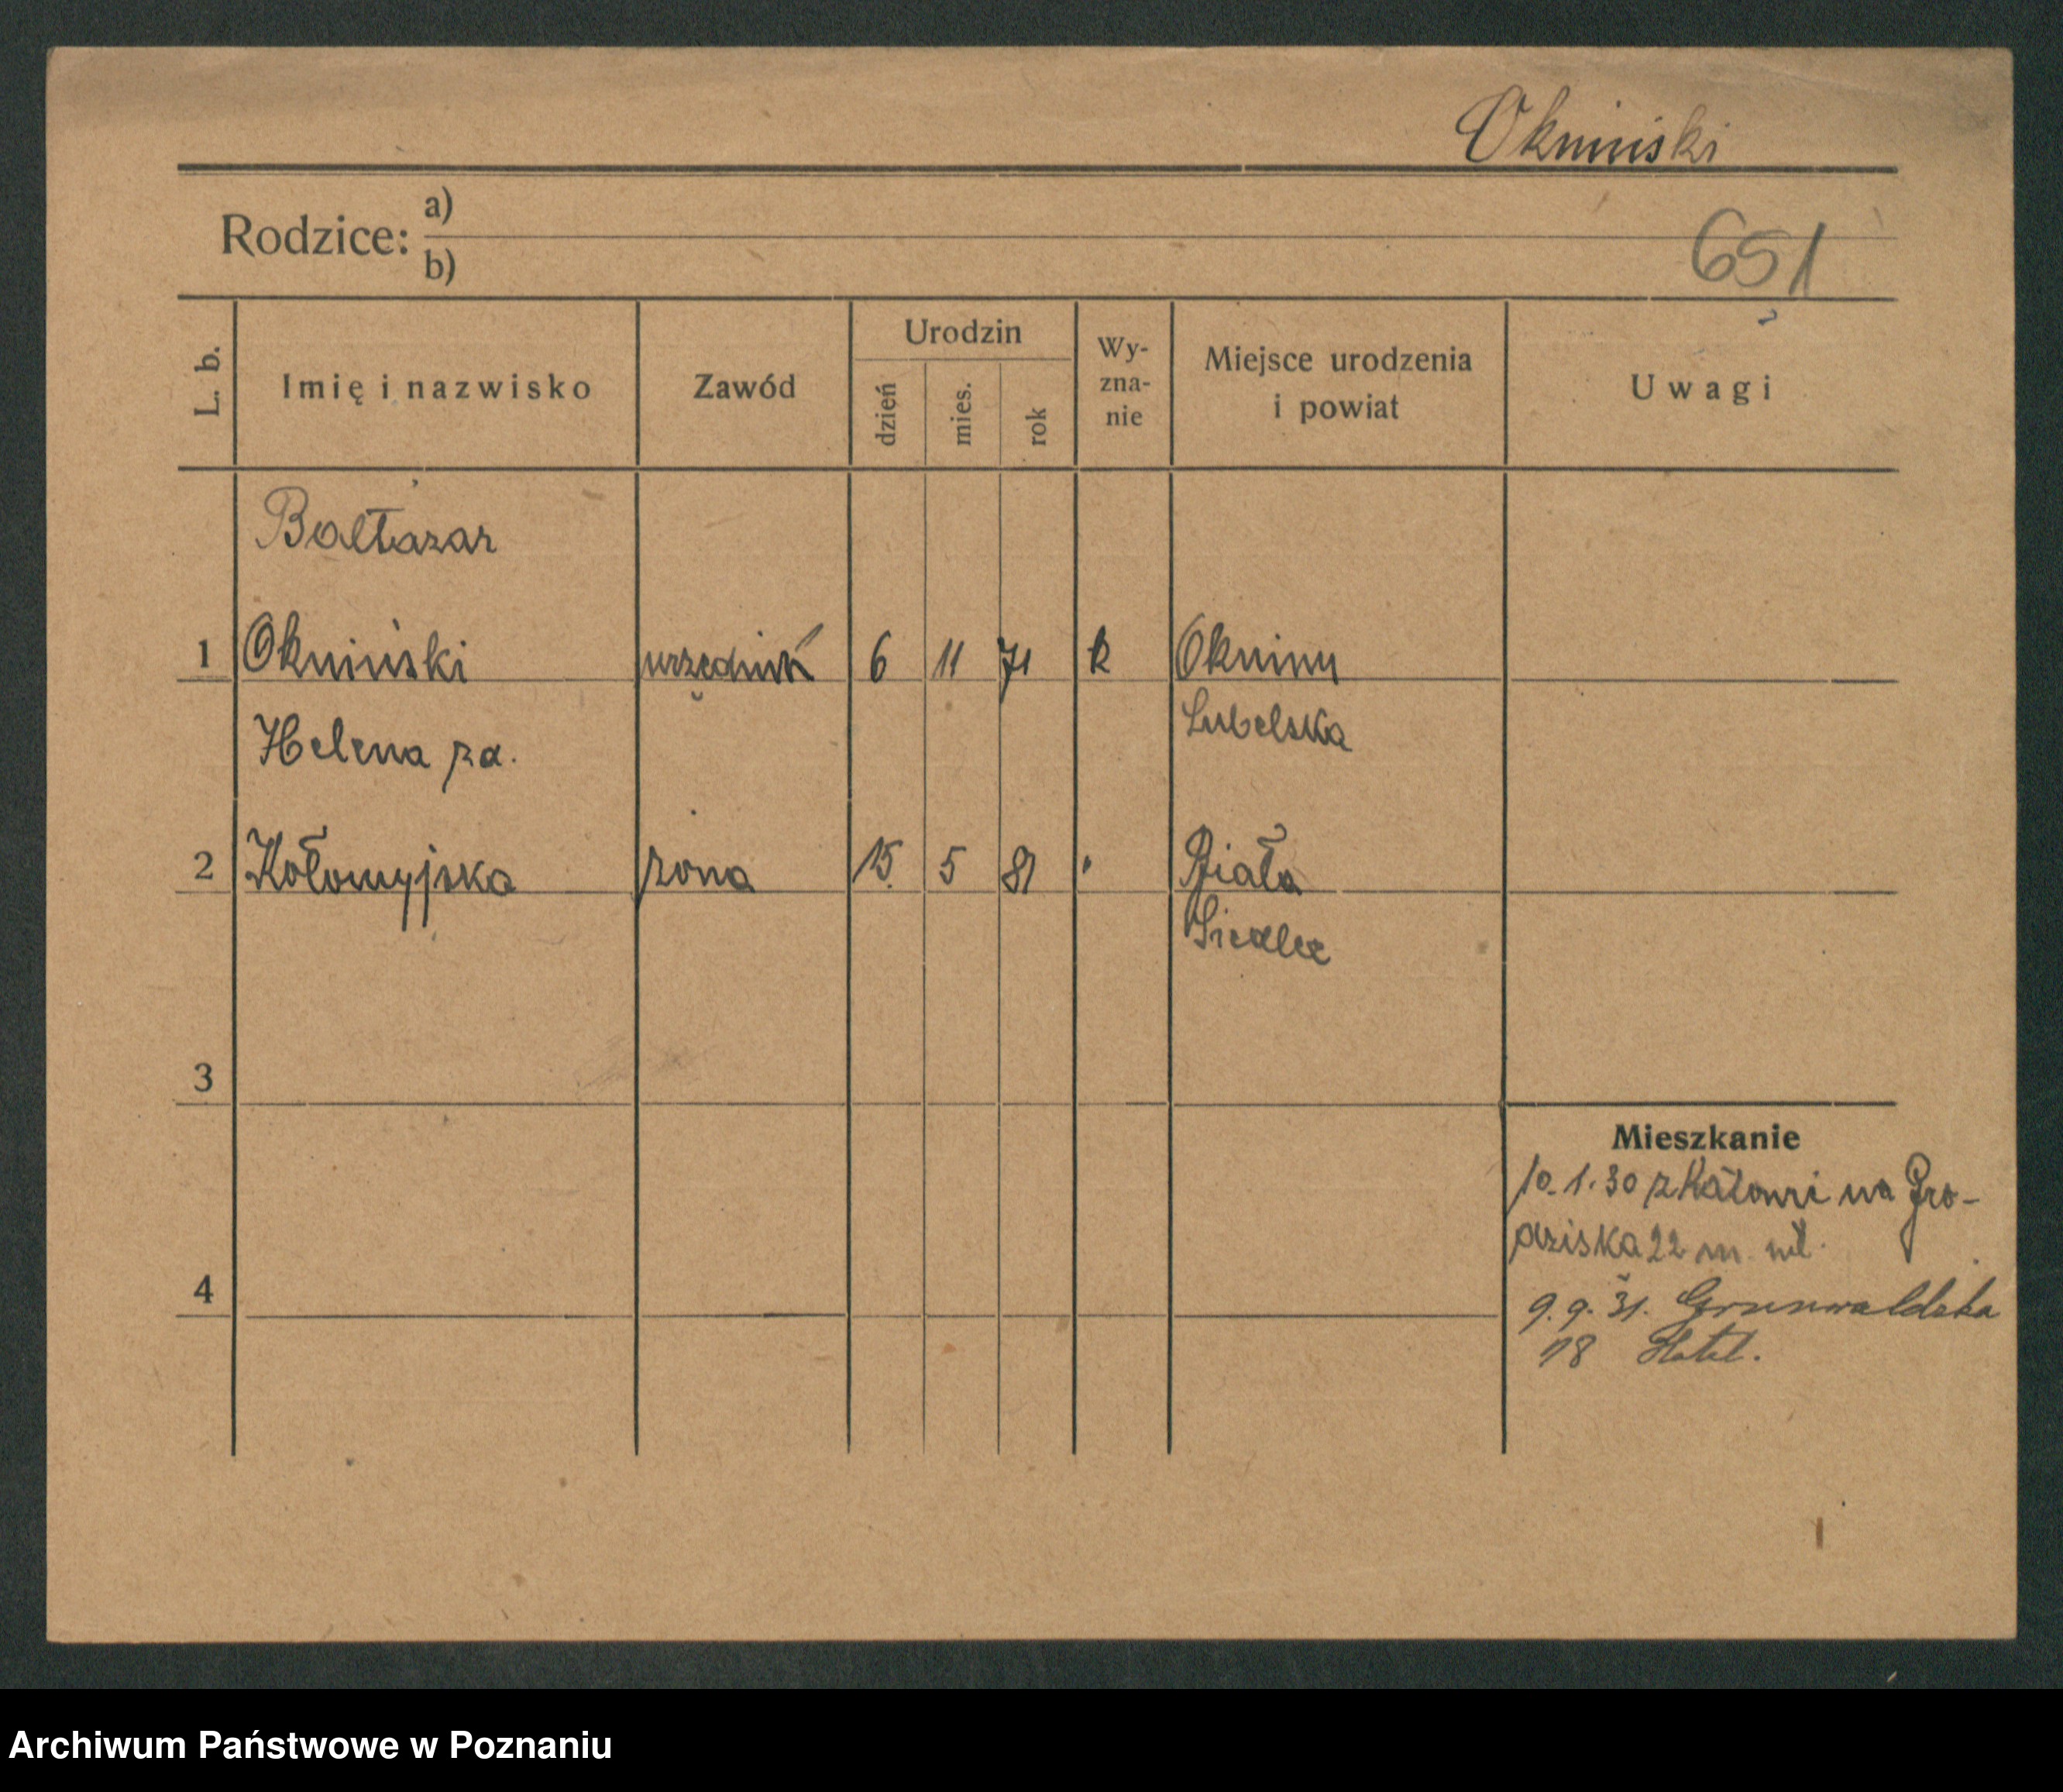 Okniński
Rodzice: a)
b)
651
L. b. Imię i nazwisko Zawód Urodzin dzień mies. rok Wy-zna-nie Miejsce urodzenia i powiat Uwagi
Baltazar
1 Okniński urzędnik 6 11 71 k Okniny
Lubelska
Helena za.
2 Kołomyjska żona 15. 5 81 " Biała
Siedlce
3
Mieszkanie
10.1.30 z Katowic na Gro-
dziska 22 m. wł.
4
9.9.31. Grunwaldska
18 Hotel.
Archiwum Państwowe w Poznaniu